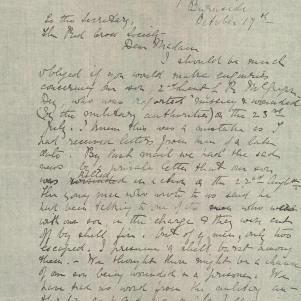 Burnside
October 17th
To the Secretary,
The Red Cross Society
Dear Madam
I should be much
obliged if you would make enquiries
concerning our son 2nd Lieut
who was reported missing & wounded
By the military authorities on the 23rd
July. I knew this was a mistake as I
had received letters from him of a later
date. By last mail we had the sad
news by private letter that our son
was killed in action on the 22nd August
The young man who wrote to us said he
had been talking to one of the men who were
with our son in the charge & they were cut
off by shell fire. Out of 9 men, only two
escaped. I presume a shell burst among
them. - We thought there might be a chance
of our son being wounded or a prisoner. We
have had no word from the military as